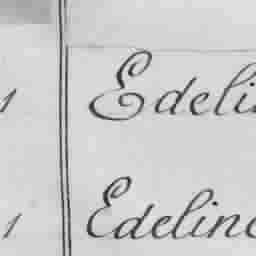 1 Edeli
1 Edelin